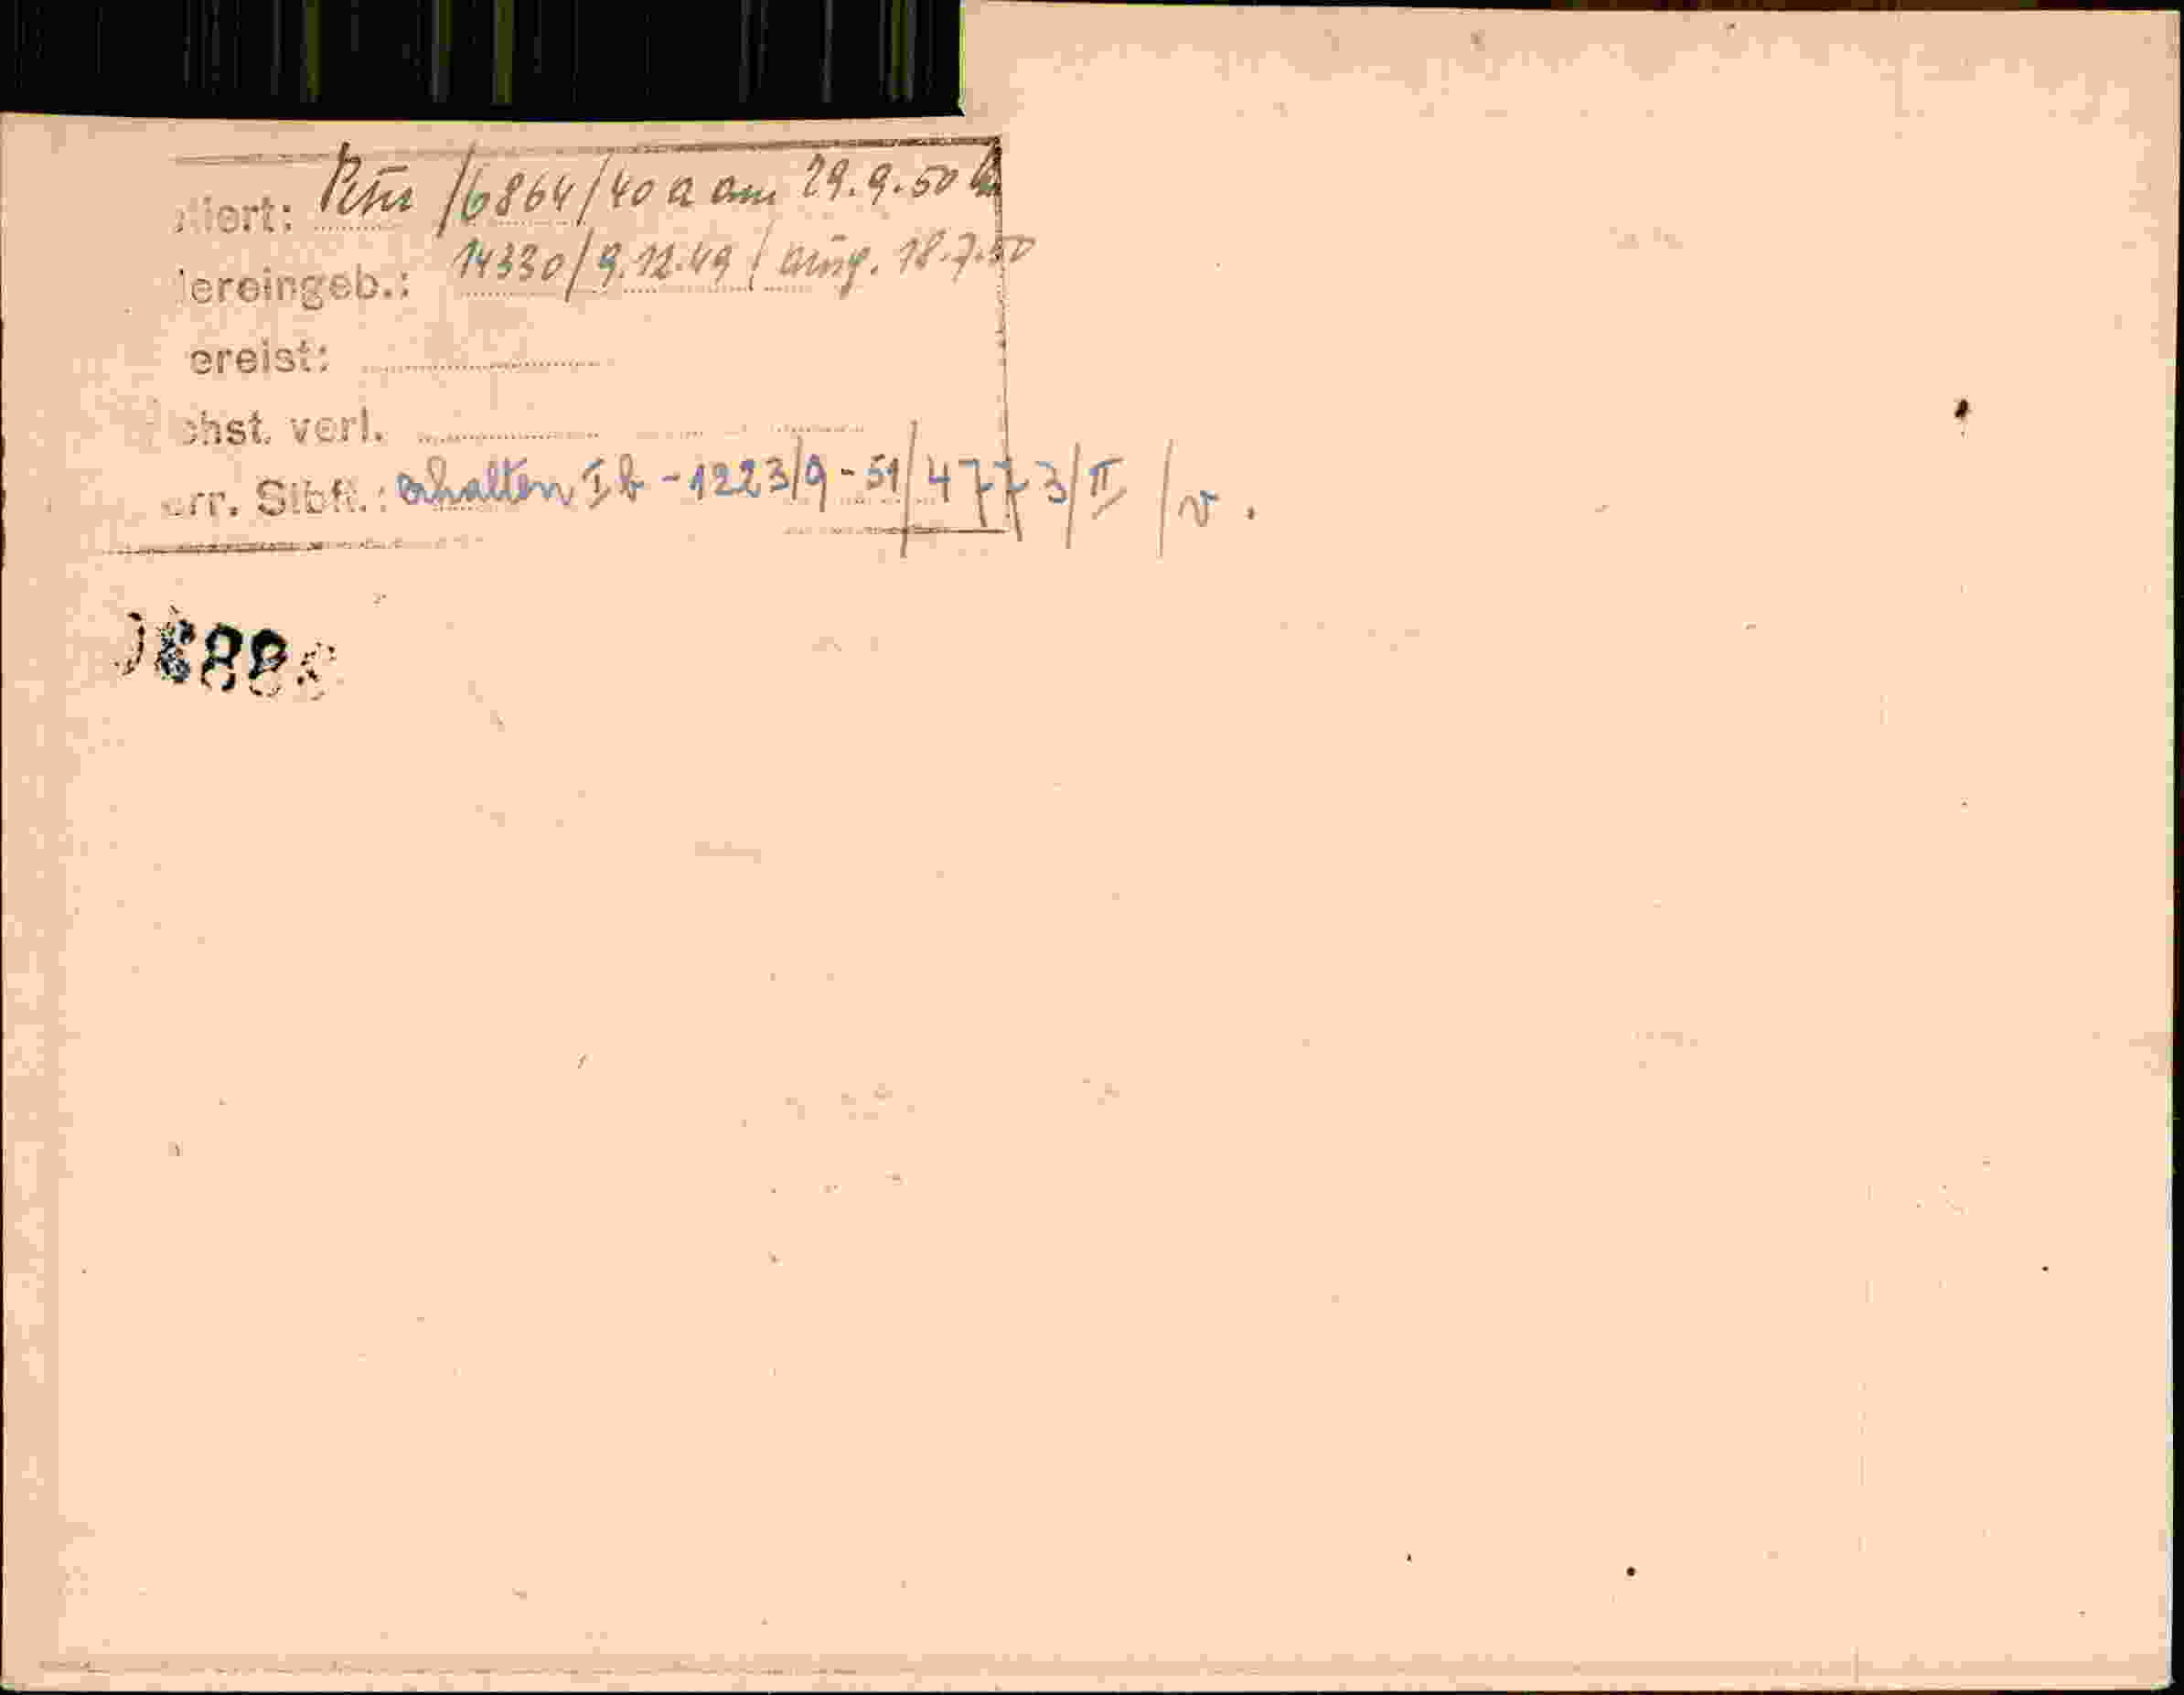 tiert: Petri /6864/40 a am 29.9.50
ereingeb.: 14330/9.12.49 / ausg. 18.7.50
ereist:
chst. verl.
err. Stbft.: erhalten I b - 1223/9-51/4773/II /v.